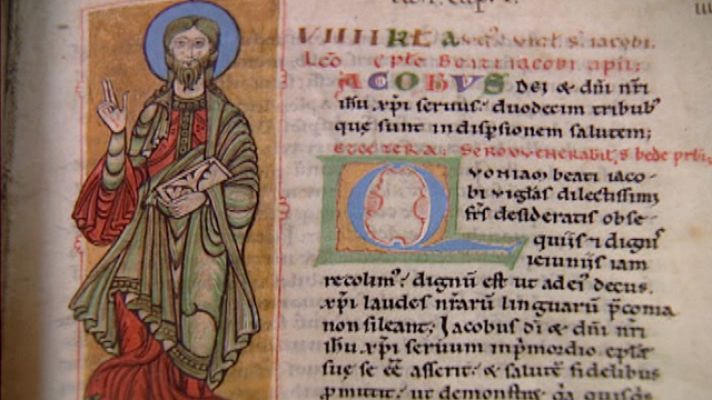 VIIII KL A
LEC EPLE BEATI IACOBI APLI
JACOBUS DEI & dñi nr̄i
ihu xp̄i seruus: duodecim tribub'
quę sunt in dispsionem salutem;
ET CETERA. SERMO VENERABILIS BEDE PRBI
QVONIAM BEATI iaco-
bi vigilias dilectissimi
fr̄s desideratis obse-
quijs & dignis
ieiunijs iam
recolim': dignū est ut ad ei' decus
xp̄i laudes nr̄arū linguarū p̄conia
non sileant; Jacobus d̄i & dñi nr̄i
ihu xp̄i seruum in p̄mordio ep̄lę
suę se ēē asserit: & salutē fidelibus
p̄mittit: ut demonstret